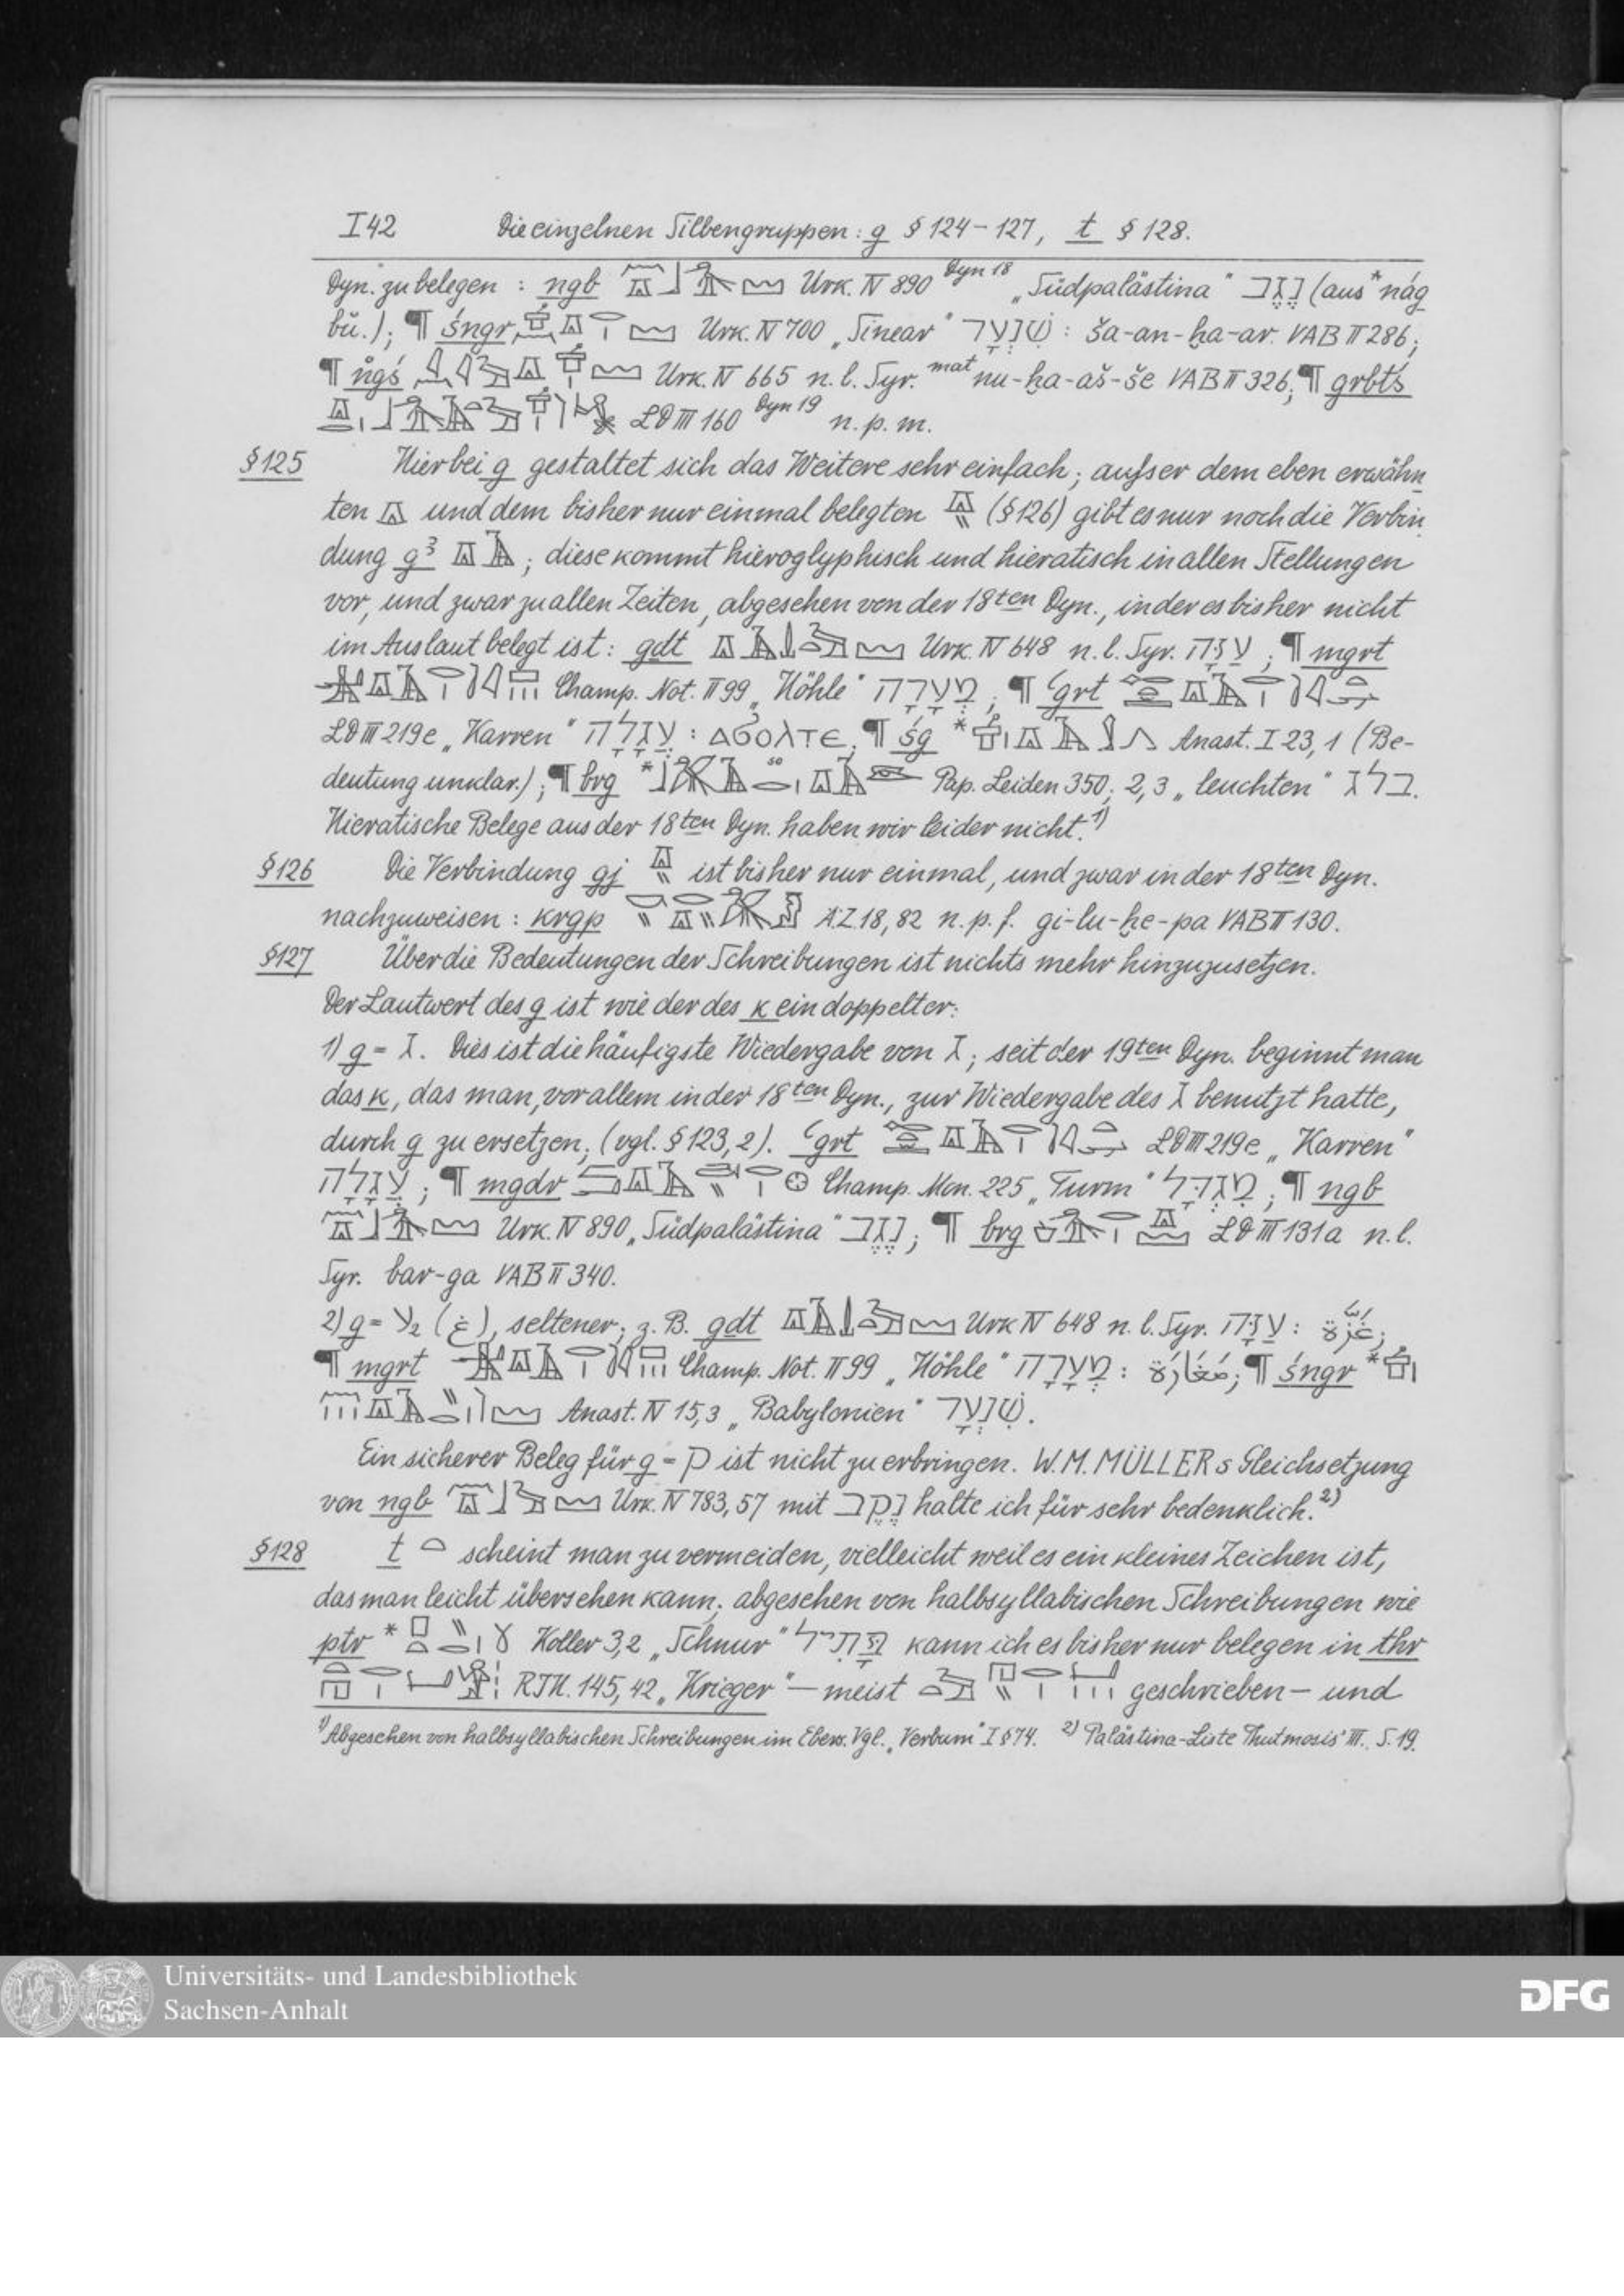 I 42 Die einzelnen Silbengruppen: g § 124–127, t § 128.
Dyn. zu belegen : ngb Urk. IV 890 Dyn 18 „Südpalästina“ נֶגֶב (aus *nág
bŭ.); ¶ śngr Urk. IV 700 „Sinear“ שִׁנְעָר : ša-an-ḫa-ar. VAB II 286;
¶ Urk. IV 665 n. l. Syr. mat nu-ḫa-aš-še VAB II 326; ¶ grbtś
LD III 160 Dyn 19 n. p. m.
§125 Hier bei g gestaltet sich das Weitere sehr einfach; außer dem eben erwähn
ten und dem bisher nur einmal belegten (§126) gibt es nur noch die Verbin
dung g³ ; diese kommt hieroglyphisch und hieratisch in allen Stellungen
vor, und zwar zu allen Zeiten, abgesehen von der 18ten Dyn., in der es bisher nicht
im Auslaut belegt ist: gdt Urk. IV 648 n. l. Syr. עַזָּה ; ¶ mgrt
Champ. Not. II 99 „Höhle“ מְעָרָה ; ¶ ʿgrt
LD III 219e „Karren“ עֲגָלָה : ⲁϭⲟⲗⲧⲉ; ¶ śg * Anast. I 23,1 (Be-
deutung unklar.); ¶ brg * Pap. Leiden 350; 2,3 „leuchten“ בלג.
Hieratische Belege aus der 18ten Dyn. haben wir leider nicht.1)
§126 Die Verbindung gj ist bisher nur einmal, und zwar in der 18ten Dyn.
nachzuweisen : krgp ÄZ 18,82 n. p. f. gi-lu-ḫe-pa VAB II 130.
§127 Über die Bedeutungen der Schreibungen ist nichts mehr hinzuzusetzen.
Der Lautwert des g ist wie der des k ein doppelter:
1) g = ג. Dies ist die häufigste Wiedergabe von ג; seit der 19ten Dyn. beginnt man
das k, das man, vor allem in der 18ten Dyn., zur Wiedergabe des ג benutzt hatte,
durch g zu ersetzen; (vgl. §123,2). ʿgrt LD III 219e „Karren“
עֲגָלָה ; ¶ mgdr Champ. Mon. 225 „Turm“ מִגְדָּל ; ¶ ngb
Urk. IV 890 „Südpalästina“ נֶגֶב ; ¶ brg LD III 131a n. l.
Syr. bar-ga VAB II 340.
2) g = ע₂ (غ), seltener; z. B. gdt Urk IV 648 n. l. Syr. עַזָּה : غَزَّة;
¶ mgrt Champ. Not. II 99 „Höhle“ מְעָרָה : مَغَارَة; ¶ śngr *
Anast. IV 15,3 „Babylonien“ שִׁנְעָר.
Ein sicherer Beleg für g = ק ist nicht zu erbringen. W. M. MÜLLERs Gleichsetzung
von ngb Urk. IV 783,57 mit נֶקֶב halte ich für sehr bedenklich.2)
§128 t scheint man zu vermeiden, vielleicht weil es ein kleines Zeichen ist,
das man leicht übersehen kann; abgesehen von halbsyllabischen Schreibungen wie
ptr * Koller 3,2 „Schnur“ פָּתִיל kann ich es bisher nur belegen in thr
145,42 „Krieger“ – meist geschrieben – und
1) Abgesehen von halbsyllabischen Schreibungen im Ebers. Vgl. „Verbum“ I §74. 2) Palästina-Liste Thutmosis' III. S. 19.
Universitäts- und Landesbibliothek
Sachsen-Anhalt
DFG